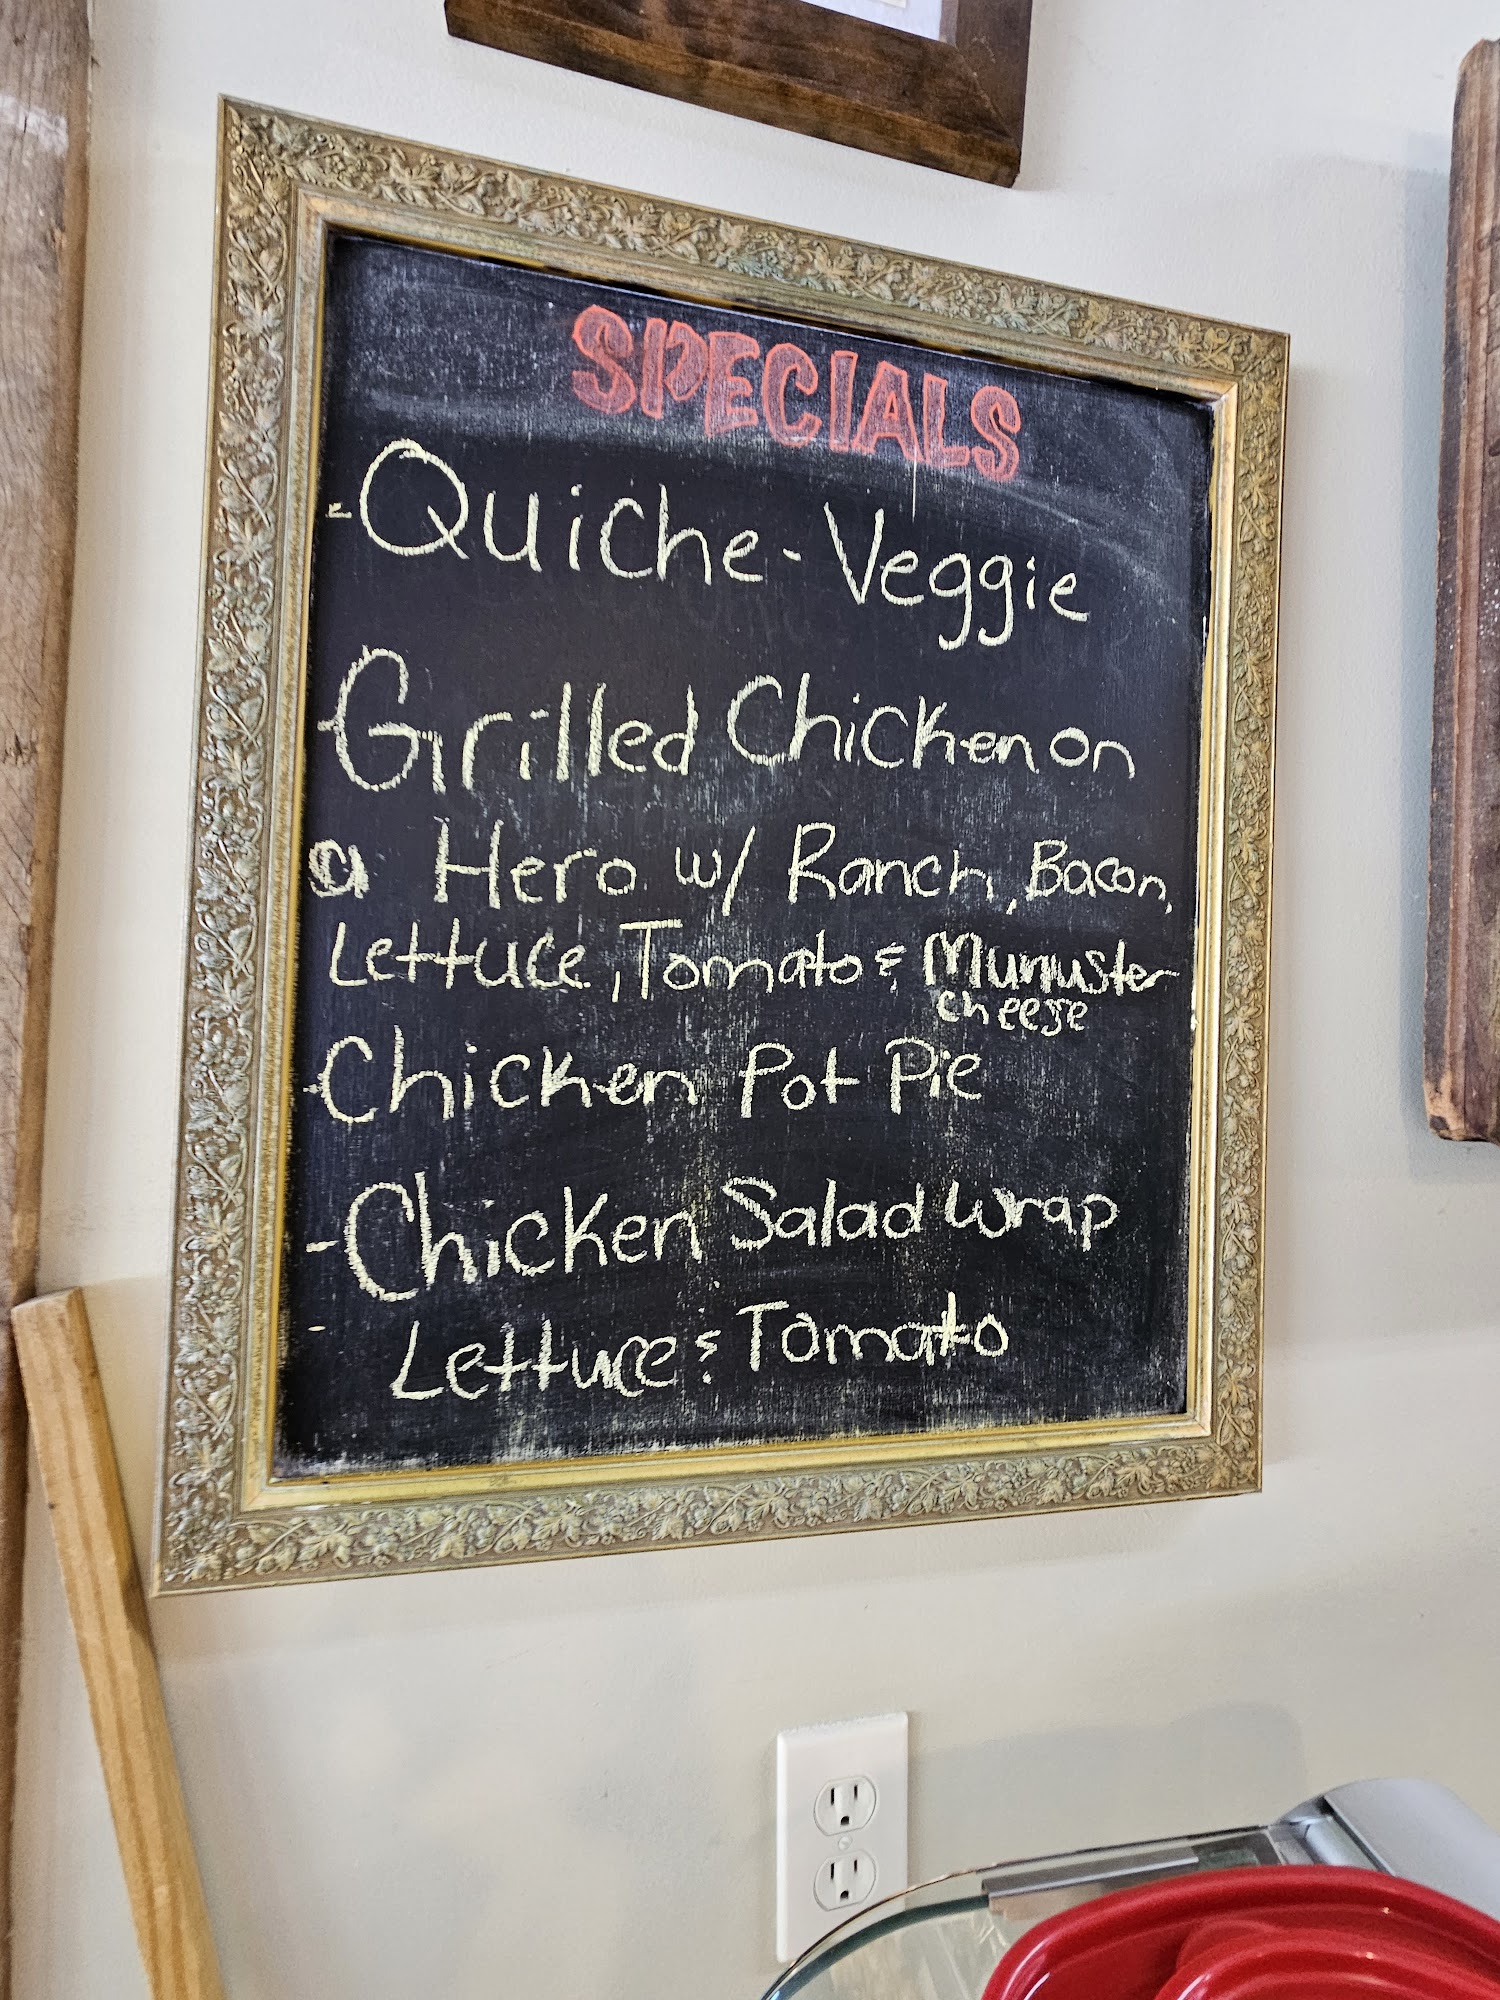 SPECIALS
- Quiche - Veggie
- Grilled Chicken on
a Hero w/ Ranch, Bacon,
Lettuce, Tomato & Munuster
cheese
- Chicken Pot Pie
- Chicken Salad Wrap
- Lettuce & Tomato